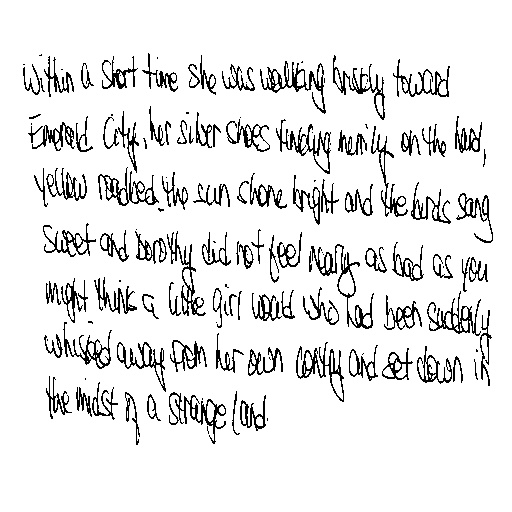 Within a short time she was walking briskly toward
Emerald City, her silver shoes tinkling merrily on the hard,
yellow roadbed. The sun shone bright and the birds sang
sweet and Dorothy did not feel nearly as bad as you
might think a little girl would who had been suddenly
whisked away from her own country and set down in
the midst of a strange land